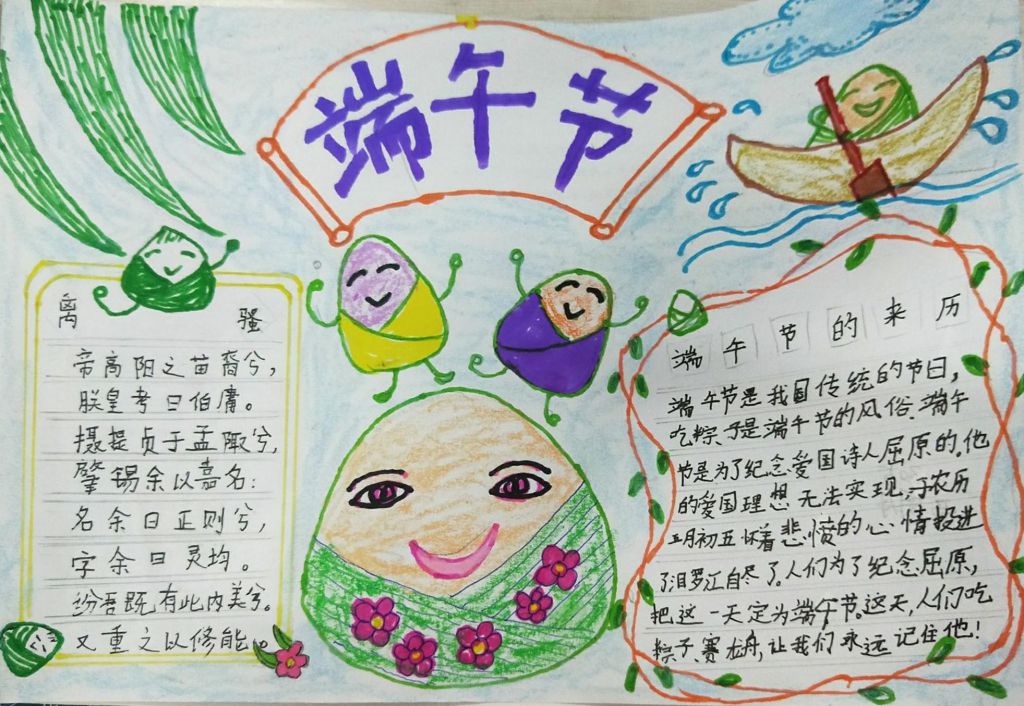 端午节
离 骚
帝高阳之苗裔兮，
朕皇考曰伯庸。
摄提贞于孟陬兮，
肇锡余以嘉名：
名余曰正则兮，
字余曰灵均。
纷吾既有此内美兮。
又重之以修能。
端午节的来历
端午节是我国传统的节日，
吃粽子是端午节的风俗.端午
节是为了纪念爱国诗人屈原的.他
的爱国理想无法实现,于农历
五月初五怀着悲愤的心情投进
了汨罗江自尽了.人们为了纪念屈原,
把这一天定为端午节.这天,人们吃
粽子、赛龙舟,让我们永远记住他!